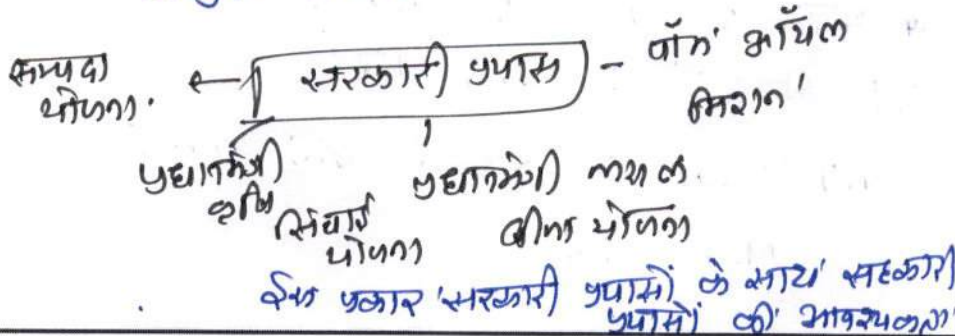 सम्पदा योजना.
सरकारी प्रयास - पॉम ऑयल मिशन
प्रधानमंत्री कृषि सिंचाई योजना
प्रधानमंत्री फसल बीमा योजना
इस प्रकार सरकारी प्रयासों के साथ सहकारी
प्रयासों की आवश्यकता